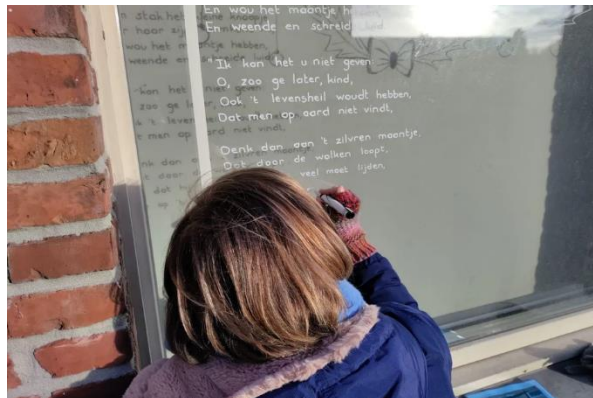 En wou het maantje h
En weende en schreid
"Ik kan het u niet geven
O, zoo ge later, kind,
Ook 't levensheil woudt hebben,
Dat men op aard niet vindt,
Denk dan aan 't zilvren maantje,
Dat door de wolken loopt,
veel moet lijden,